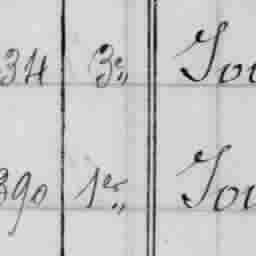 34 3e,, Jou
390 1er,, Jou